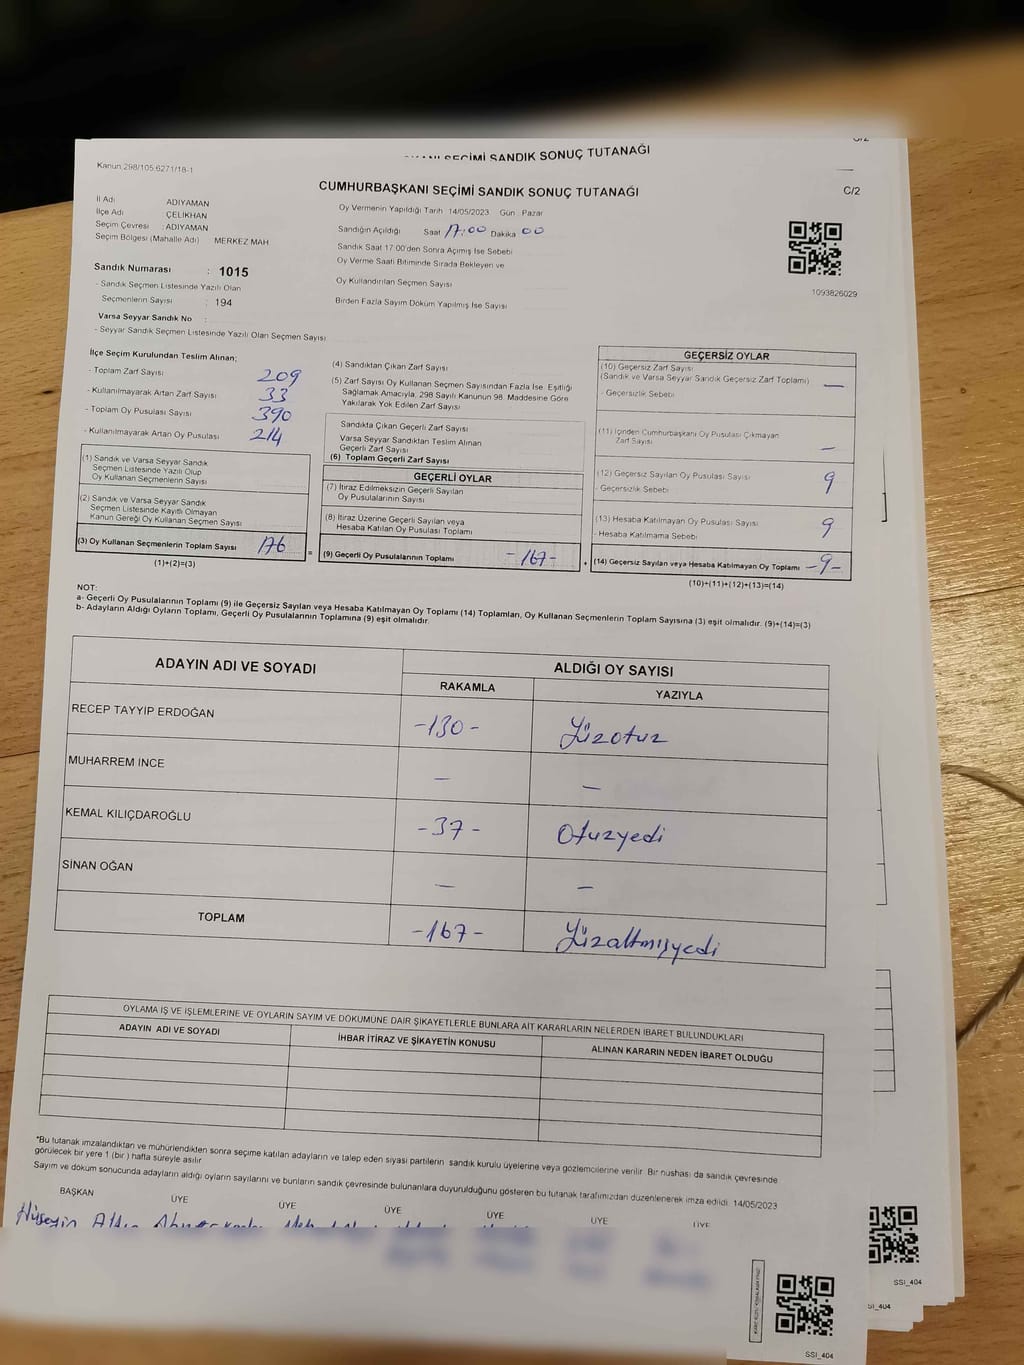 SEÇİMİ SANDIK SONUÇ TUTANAĞI
C/2
Kanun 298/105.6271/18-1
CUMHURBAŞKANI SEÇİMİ SANDIK SONUÇ TUTANAĞI
C/2
İl Adı ADIYAMAN
İlçe Adı ÇELİKHAN
Seçim Çevresi : ADIYAMAN
Seçim Bölgesi (Mahalle Adı) MERKEZ MAH
Sandık Numarası : 1015
- Sandık Seçmen Listesinde Yazılı Olan
Seçmenlerin Sayısı : 194
Varsa Seyyar Sandık No :
- Seyyar Sandık Seçmen Listesinde Yazılı Olan Seçmen Sayısı
Oy Vermenin Yapıldığı Tarih 14/05/2023 Gün : Pazar
Sandığın Açıldığı Saat 17:00 Dakika 00
Sandık Saat 17:00'den Sonra Açımış İse Sebebi
Oy Verme Saati Bitiminde Sırada Bekleyen ve
Oy Kullandırılan Seçmen Sayısı
Birden Fazla Sayım Döküm Yapılmış İse Sayısı
1093826029
İlçe Seçim Kurulundan Teslim Alınan;
- Toplam Zarf Sayısı 209
- Kullanılmayarak Artan Zarf Sayısı 33
- Toplam Oy Pusulası Sayısı 390
- Kullanılmayarak Artan Oy Pusulası 214
(1) Sandık ve Varsa Seyyar Sandık
Seçmen Listesinde Yazılı Olup
Oy Kullanan Seçmenlerin Sayısı
(2) Sandık ve Varsa Seyyar Sandık
Seçmen Listesinde Kayıtlı Olmayan
Kanun Gereği Oy Kullanan Seçmen Sayısı
(3) Oy Kullanan Seçmenlerin Toplam Sayısı 176
(1)+(2)=(3)
=
(4) Sandıktan Çıkan Zarf Sayısı
(5) Zarf Sayısı Oy Kullanan Seçmen Sayısından Fazla İse, Eşitliği
Sağlamak Amacıyla, 298 Sayılı Kanunun 98. Maddesine Göre
Yakılarak Yok Edilen Zarf Sayısı
Sandıkta Çıkan Geçerli Zarf Sayısı
Varsa Seyyar Sandıktan Teslim Alınan
Geçerli Zarf Sayısı
(6) Toplam Geçerli Zarf Sayısı
GEÇERLİ OYLAR
(7) İtiraz Edilmeksizin Geçerli Sayılan
Oy Pusulalarının Sayısı
(8) İtiraz Üzerine Geçerli Sayılan veya
Hesaba Katılan Oy Pusulası Toplamı
(9) Geçerli Oy Pusulalarının Toplamı -167-
+
GEÇERSİZ OYLAR
(10) Geçersiz Zarf Sayısı
(Sandık ve Varsa Seyyar Sandık Geçersiz Zarf Toplamı) —
- Geçersizlik Sebebi
(11) İçinden Cumhurbaşkanı Oy Pusulası Çıkmayan
Zarf Sayısı —
(12) Geçersiz Sayılan Oy Pusulası Sayısı 9
- Geçersizlik Sebebi
(13) Hesaba Katılmayan Oy Pusulası Sayısı 9
- Hesaba Katılmama Sebebi
(14) Geçersiz Sayılan veya Hesaba Katılmayan Oy Toplamı -9-
(10)+(11)+(12)+(13)=(14)
NOT:
a- Geçerli Oy Pusulalarının Toplamı (9) ile Geçersiz Sayılan veya Hesaba Katılmayan Oy Toplamı (14) Toplamları, Oy Kullanan Seçmenlerin Toplam Sayısına (3) eşit olmalıdır. (9)+(14)=(3)
b- Adayların Aldığı Oyların Toplamı, Geçerli Oy Pusulalarının Toplamına (9) eşit olmalıdır.
ADAYIN ADI VE SOYADI ALDIĞI OY SAYISI
RAKAMLA YAZIYLA
RECEP TAYYIP ERDOĞAN -130- Yüzotuz
MUHARREM İNCE — —
KEMAL KILIÇDAROĞLU -37- Otuzyedi
SİNAN OĞAN — —
TOPLAM -167- Yüzaltmışyedi
OYLAMA İŞ VE İŞLEMLERİNE VE OYLARIN SAYIM VE DÖKÜMÜNE DAİR ŞİKAYETLERLE BUNLARA AİT KARARLARIN NELERDEN İBARET BULUNDUKLARI
ADAYIN ADI VE SOYADI İHBAR İTİRAZ VE ŞİKAYETİN KONUSU ALINAN KARARIN NEDEN İBARET OLDUĞU
*Bu tutanak imzalandıktan ve mühürlendikten sonra seçime katılan adayların ve talep eden siyasi partilerin sandık kurulu üyelerine veya gözlemcilerine verilir. Bir nushası da sandık çevresinde
görülecek bir yere 1 (bir) hafta süreyle asılır
Sayım ve döküm sonucunda adayların aldığı oyların sayılarını ve bunların sandık çevresinde bulunanlara duyurulduğunu gösteren bu tutanak tarafımızdan düzenlenerek imza edildi. 14/05/2023
BAŞKAN ÜYE ÜYE ÜYE ÜYE ÜYE ÜYE
Hüseyin
SSI_404
SSI_404
SSI_404